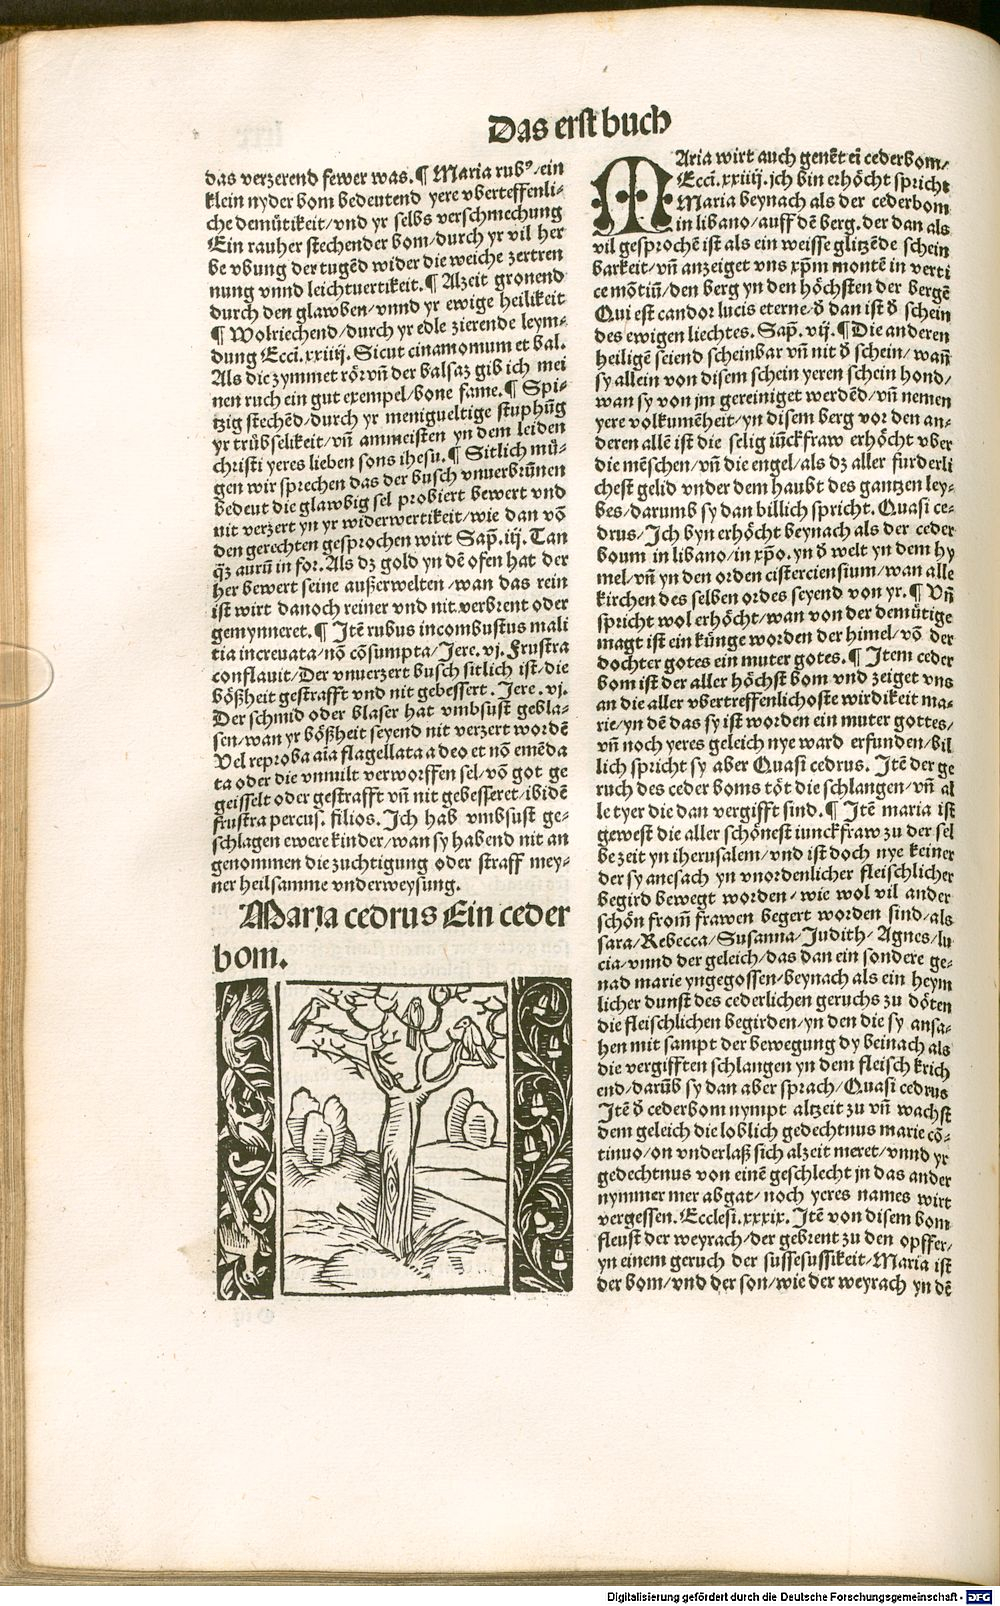 Das erst buch
das verzerend fewer was. ¶ Maria rubꝰ/ein
klein nyder bom bedeutend yere vberteffenli-
che demütikeit/vnd yr selbs verschmechung
Ein rauher stechender bom/durch yr vil her
be vbung der tugēd wider die weiche zertren
nung vnnd leichtuertikeit. ¶ Alzeit gronend
durch den glawben/vnnd yr ewige heilikeit
¶ Wolriechend/durch yr edle zierende leym-
dung Ecci. xxiiij. Sicut cinamomum et bal.
Als die zymmet rör vn̄ der balsaz gib ich mei
nen ruch ein gut exempel/bone fame. ¶ Spi-
tzig stechēd/durch yr menigueltige stuphūg
yr trübselikeit/vn̄ ammeisten yn dem leiden
christi yeres lieben sons ihesu. ¶ Sitlich mü-
gen wir sprechen das der busch vnuerbrūnen
bedeut die glawbig sel probiert bewert vnd
nit verzert yn yr widerwertikeit/wie dan vō
den gerechten gesprochen wirt Sap̄. iij. Tan
q̄ȝ aurū in for. Als dz gold yn dē ofen hat der
her bewert seine außerwelten/wan das rein
ist wirt danoch reiner vnd nit verbrent oder
gemynneret. ¶ Itē rubus incombustus mali
tia increuata/nō cōsumpta/Jere. vj. Frustra
conflauit/Der vnuerzert busch sitlich ist/die
bößheit gestrafft vnd nit gebessert. Jere. vj.
Der schmid oder blaser hat vmbsust gebla-
sen/wan yr bößheit seyend nit verzert wordē
Vel reproba aīa flagellata a deo et nō emēda
ta oder die vnmilt verworffen sel/vō got ge
geisselt oder gestrafft vn̄ nit gebesseret/ibidē
frustra percus. filios. Ich hab vmbsust ge-
schlagen ewere kinder/wan sy habend nit an
genommen die zuchtigung oder straff mey-
ner heilsamme vnderweysung.
Maria cedrus Ein ceder
bom.
MAria wirt auch genēt ei cederbom/
Ecci. xxiiij. jch bin erhöcht spricht
Maria beynach als der cederbom
in libano/auff dē berg. der dan als
vil gesprochē ist als ein weisse glitzēde schein
barkeit/vn̄ anzeiget vns xp̄m montē in verti
ce mōtiū/den berg yn den höchsten der bergē
Qui est candor lucis eterne/ð dan ist ð schein
des ewigen liechtes. Sap̄. vij. ¶ Die anderen
heiligē seiend scheinbar vn̄ nit ð schein/wan̄
sy allein von disem schein yeren schein hond/
wan sy von jm gereiniget werdēd/vn̄ nemen
yere volkumēheit/yn disem berg vor den an-
deren allē ist die selig iūckfraw erhöcht vber
die mēschen/vn̄ die engel/als dz aller furderli
chest gelid vnder dem haubt des gantzen ley-
bes/darumb sy dan billich spricht. Quasi ce-
drus/Ich byn erhöcht beynach als der ceder
boum in libano/in xp̄o. yn ð welt yn dem hy
mel/vn̄ yn den orden cisterciensium/wan alle
kirchen des selben ordes seyend von yr. ¶ Vn̄
spricht wol erhöcht/wan von der demütige
magt ist ein künge worden der himel/vō der
dochter gotes ein muter gotes. ¶ Item ceder
bom ist der aller höchst bom vnd zeiget vns
an die aller vbertreffenlichoste wirdikeit ma-
rie/yn dē das sy ist worden ein muter gottes/
vn̄ noch yeres geleich nye ward erfunden/bil
lich spricht sy aber Quasi cedrus. Itē der ge
ruch des ceder boms töt die schlangen/vn̄ al
le tyer die dan vergifft sind. ¶ Itē maria ist
gewest die aller schönest iunckfraw zu der sel
be zeit yn iherusalem/vnd ist doch nye keiner
der sy anesach yn vnordenlicher fleischlicher
begird bewegt worden/wie wol vil ander
schön from̄ frawen begert worden sind/als
sara/Rebecca/Susanna/Judith/Agnes/lu
cia/vnnd der geleich/das dan ein sondere ge-
nad marie yngegossen/beynach als ein heym
licher dunst des cederlichen geruchs zu döten
die fleischlichen begirden/yn den die sy ansa-
hen mit sampt der bewegung dy beinach als
die vergifften schlangen yn dem fleisch krich
end/darūb sy dan aber sprach/Quasi cedrus
Itē ð cederbom nympt altzeit zu vn̄ wachst
dem geleich die loblich gedechtnus marie cō-
tinuo/on vnderlaß sich alzeit meret/vnnd yr
gedechtnus von einē geschlecht jn das ander
nymmer mer abgat/noch yeres names wirt
vergessen. Ecclesi. xxxix. Itē von disem bom
fleust der weyrach/der gebrent zu den opffer/
yn einem geruch der sussesussikeit/Maria ist
der bom/vnd der son/wie der weyrach yn dē
Digitalisierung gefördert durch die Deutsche Forschungsgemeinschaft - DFG